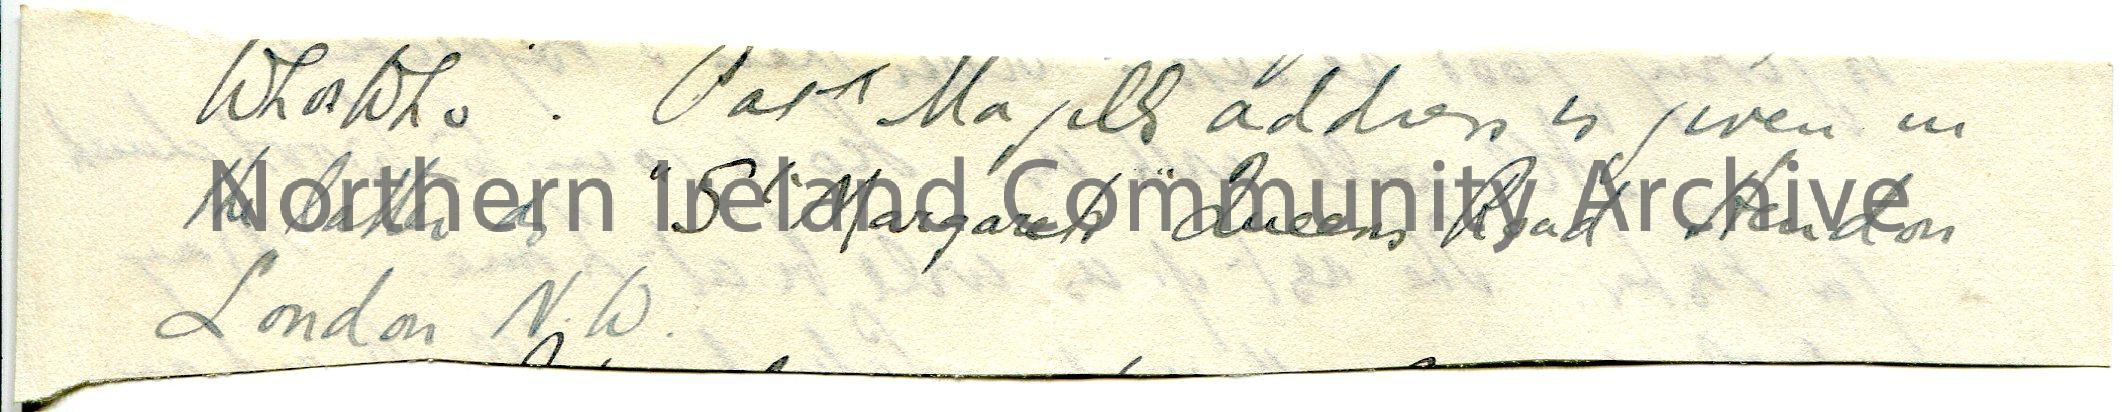 Whos Who". Capt Magills address is given in
the latter as "St Margarets" Queens Road Hendon
London N.W.
Northern Ireland Community Archive